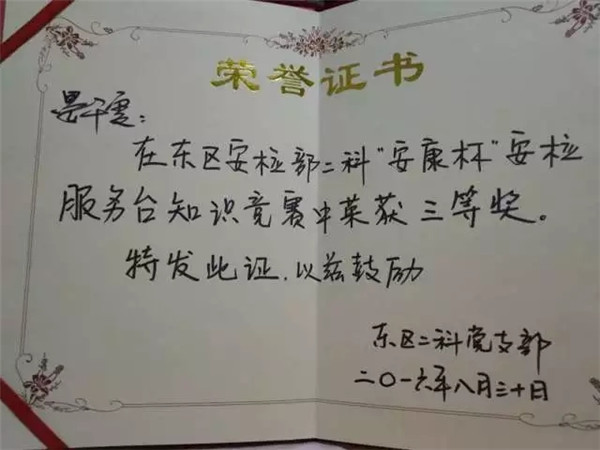 荣誉证书
在东区安检部二科“安康杯”安检
服务台知识竞赛中荣获三等奖。
特发此证，以兹鼓励
东区二科党支部
二〇一六年八月三十日